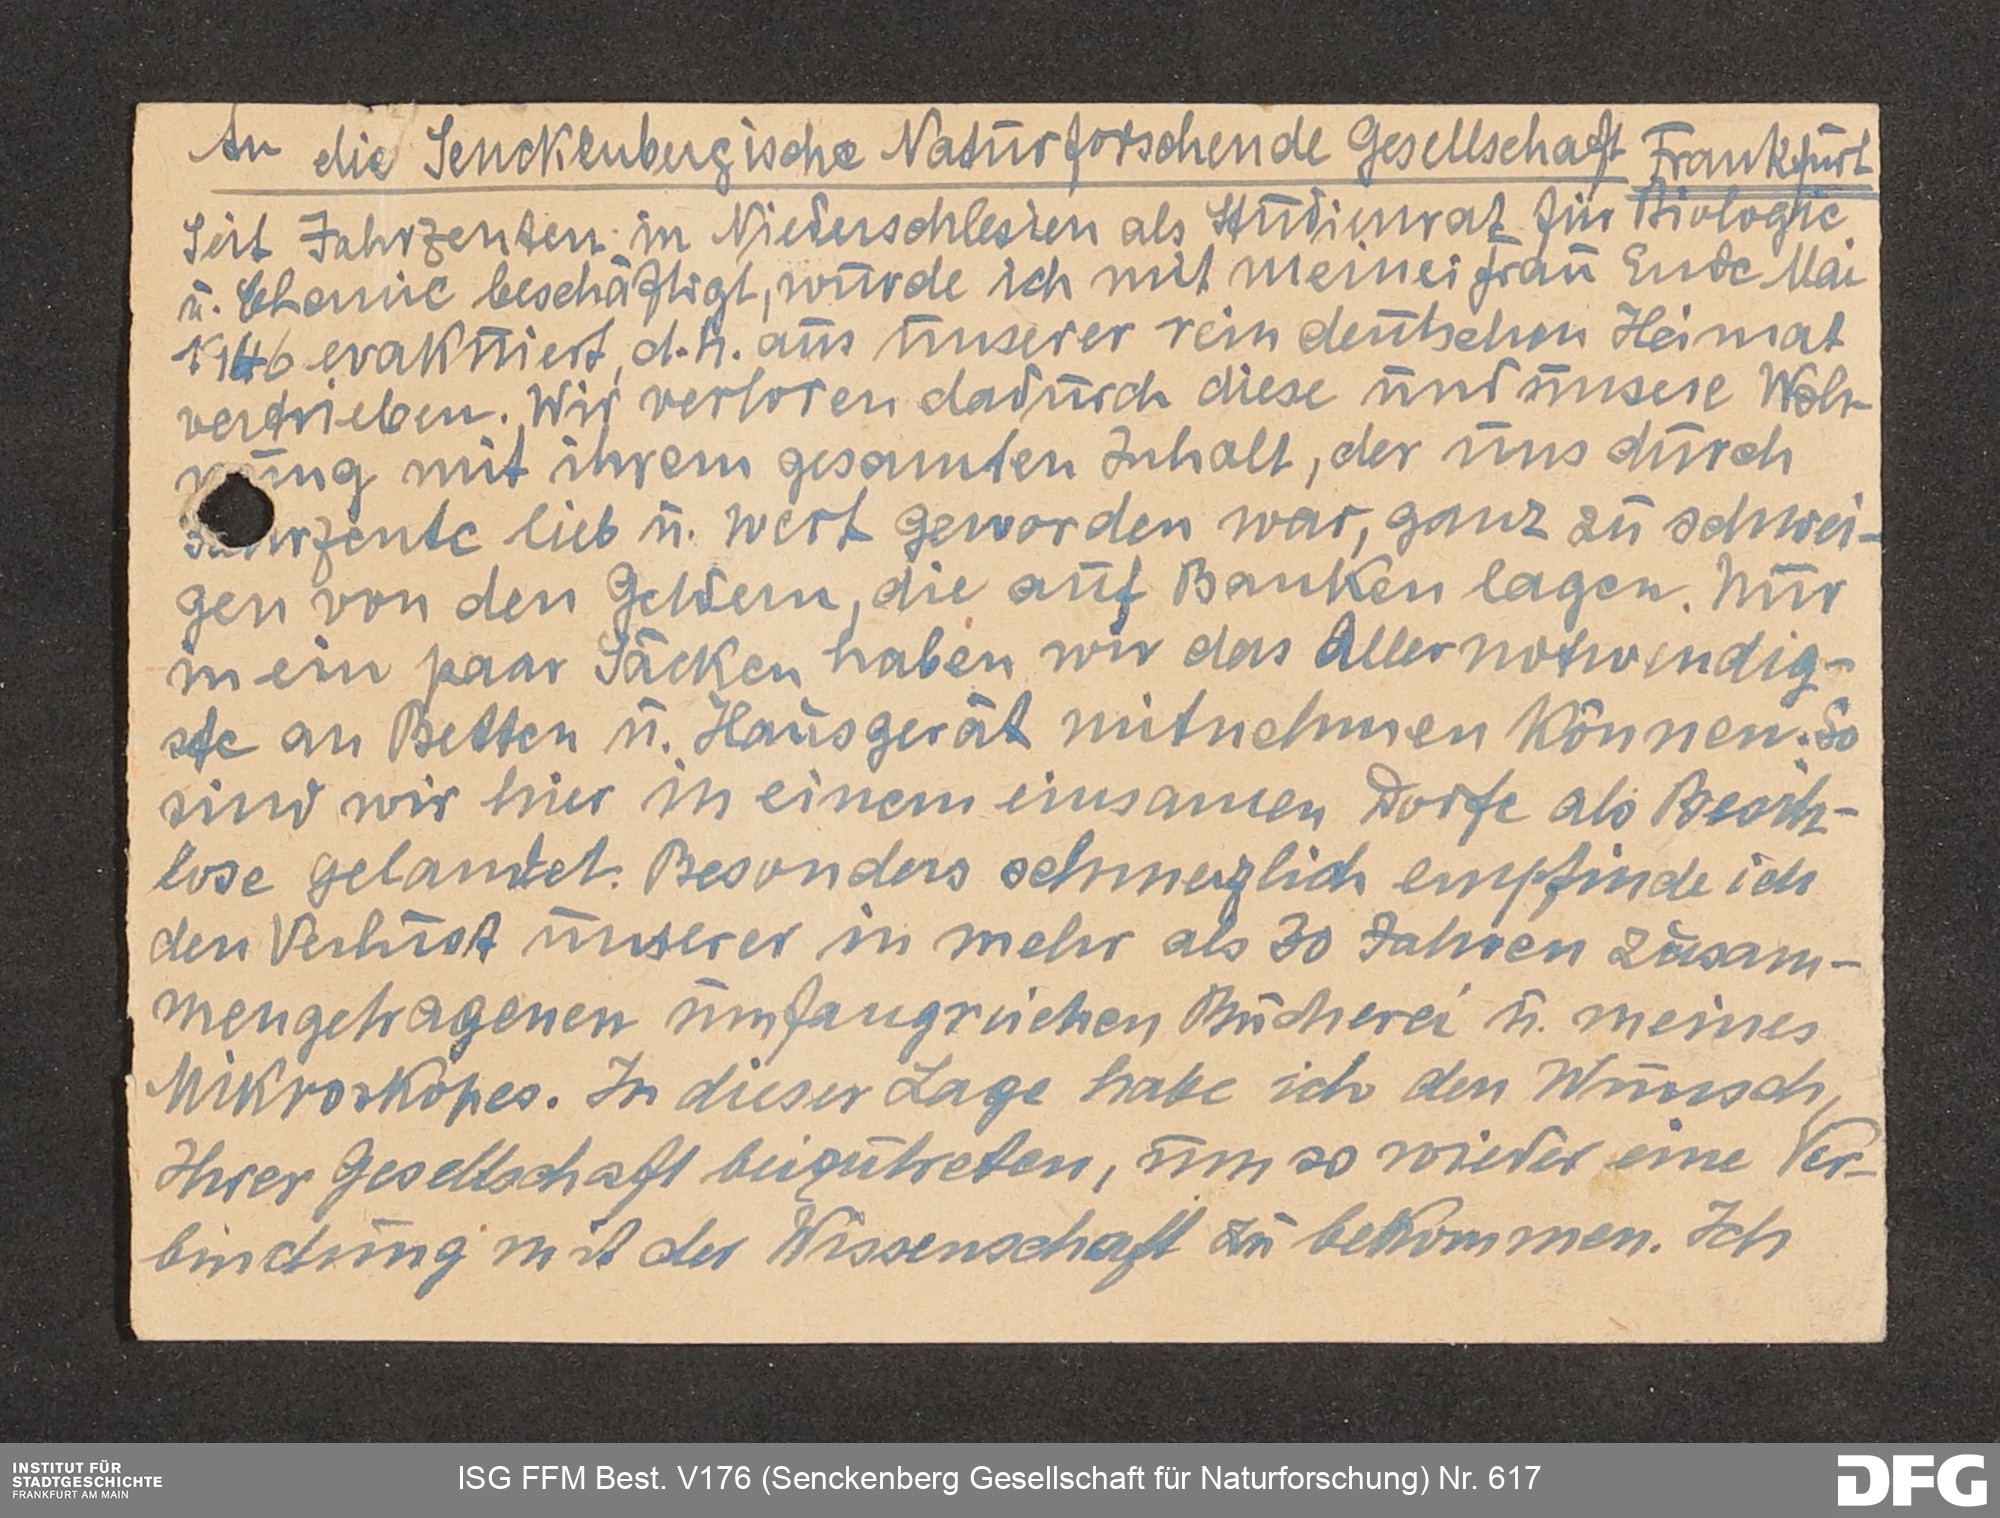 An die Senckenbergische Naturforschende Gesellschaft Frankfurt
Seit Jahrzenten in Niederschlesien als Studienrat für Biologie
u. Chemie beschäftigt, wurde ich mit meiner Frau Ende Mai
1946 evakuiert, d.h. aus unserer rein deutschen Heimat
vertrieben. Wir verloren dadurch diese und unsere Woh-
nung mit ihrem gesamten Inhalt, der uns durch
Jahrzente lieb u. wert geworden war, ganz zu schwei-
gen von den Geldern, die auf Banken lagen. Nur
in ein paar Säcken haben wir das Allernotwendig-
ste an Betten u. Hausgerät mitnehmen können. So
sind wir hier in einem einsamen Dorfe als Besitz-
lose gelandet. Besonders schmerzlich empfinde ich
den Verlust unserer in mehr als 30 Jahren zusam-
mengetragenen umfangreichen Bücherei u. meines
Mikroskopes. In dieser Lage habe ich den Wunsch,
Ihrer Gesellschaft beizutreten, um so wieder eine Ver-
bindung mit der Wissenschaft zu bekommen. Ich
INSTITUT FÜR
STADTGESCHICHTE
FRANKFURT AM MAIN
ISG FFM Best. V176 (Senckenberg Gesellschaft für Naturforschung) Nr. 617
DFG